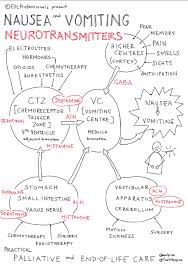 @EOLProfessionals present
NAUSEA and VOMITING
NEUROTRANSMITTERS
ELECTROLYTES
HORMONES
OPIOIDS
CHEMOTHERAPY
ANAESTHETICS
HIGHER
CENTRES
CORTEX
FEAR
MEMORY
PAIN
SMELLS
SIGHTS
ANTICIPATION
GABA
CTZ
(CHEMORECEPTOR
TRIGGER
ZONE)
4th VENTRICLE
DOPAMINE
SEROTONIN
VC
VOMITING
CENTRE
MEDULLA
ACH
HISTAMINE
NAUSEA
VOMITING
STOMACH
SMALL INTESTINE
VAGUS NERVE
SEROTONIN
HISTAMINE
ACH
VESTIBULAR
APPARATUS
CEREBELLUM
ACH
HISTAMINE
CHEMOTHERAPY
SURGERY
RADIOTHERAPY
MOTION
SICKNESS
SURGERY
PRACTICAL
PALLIATIVE and END-OF-LIFE CARE